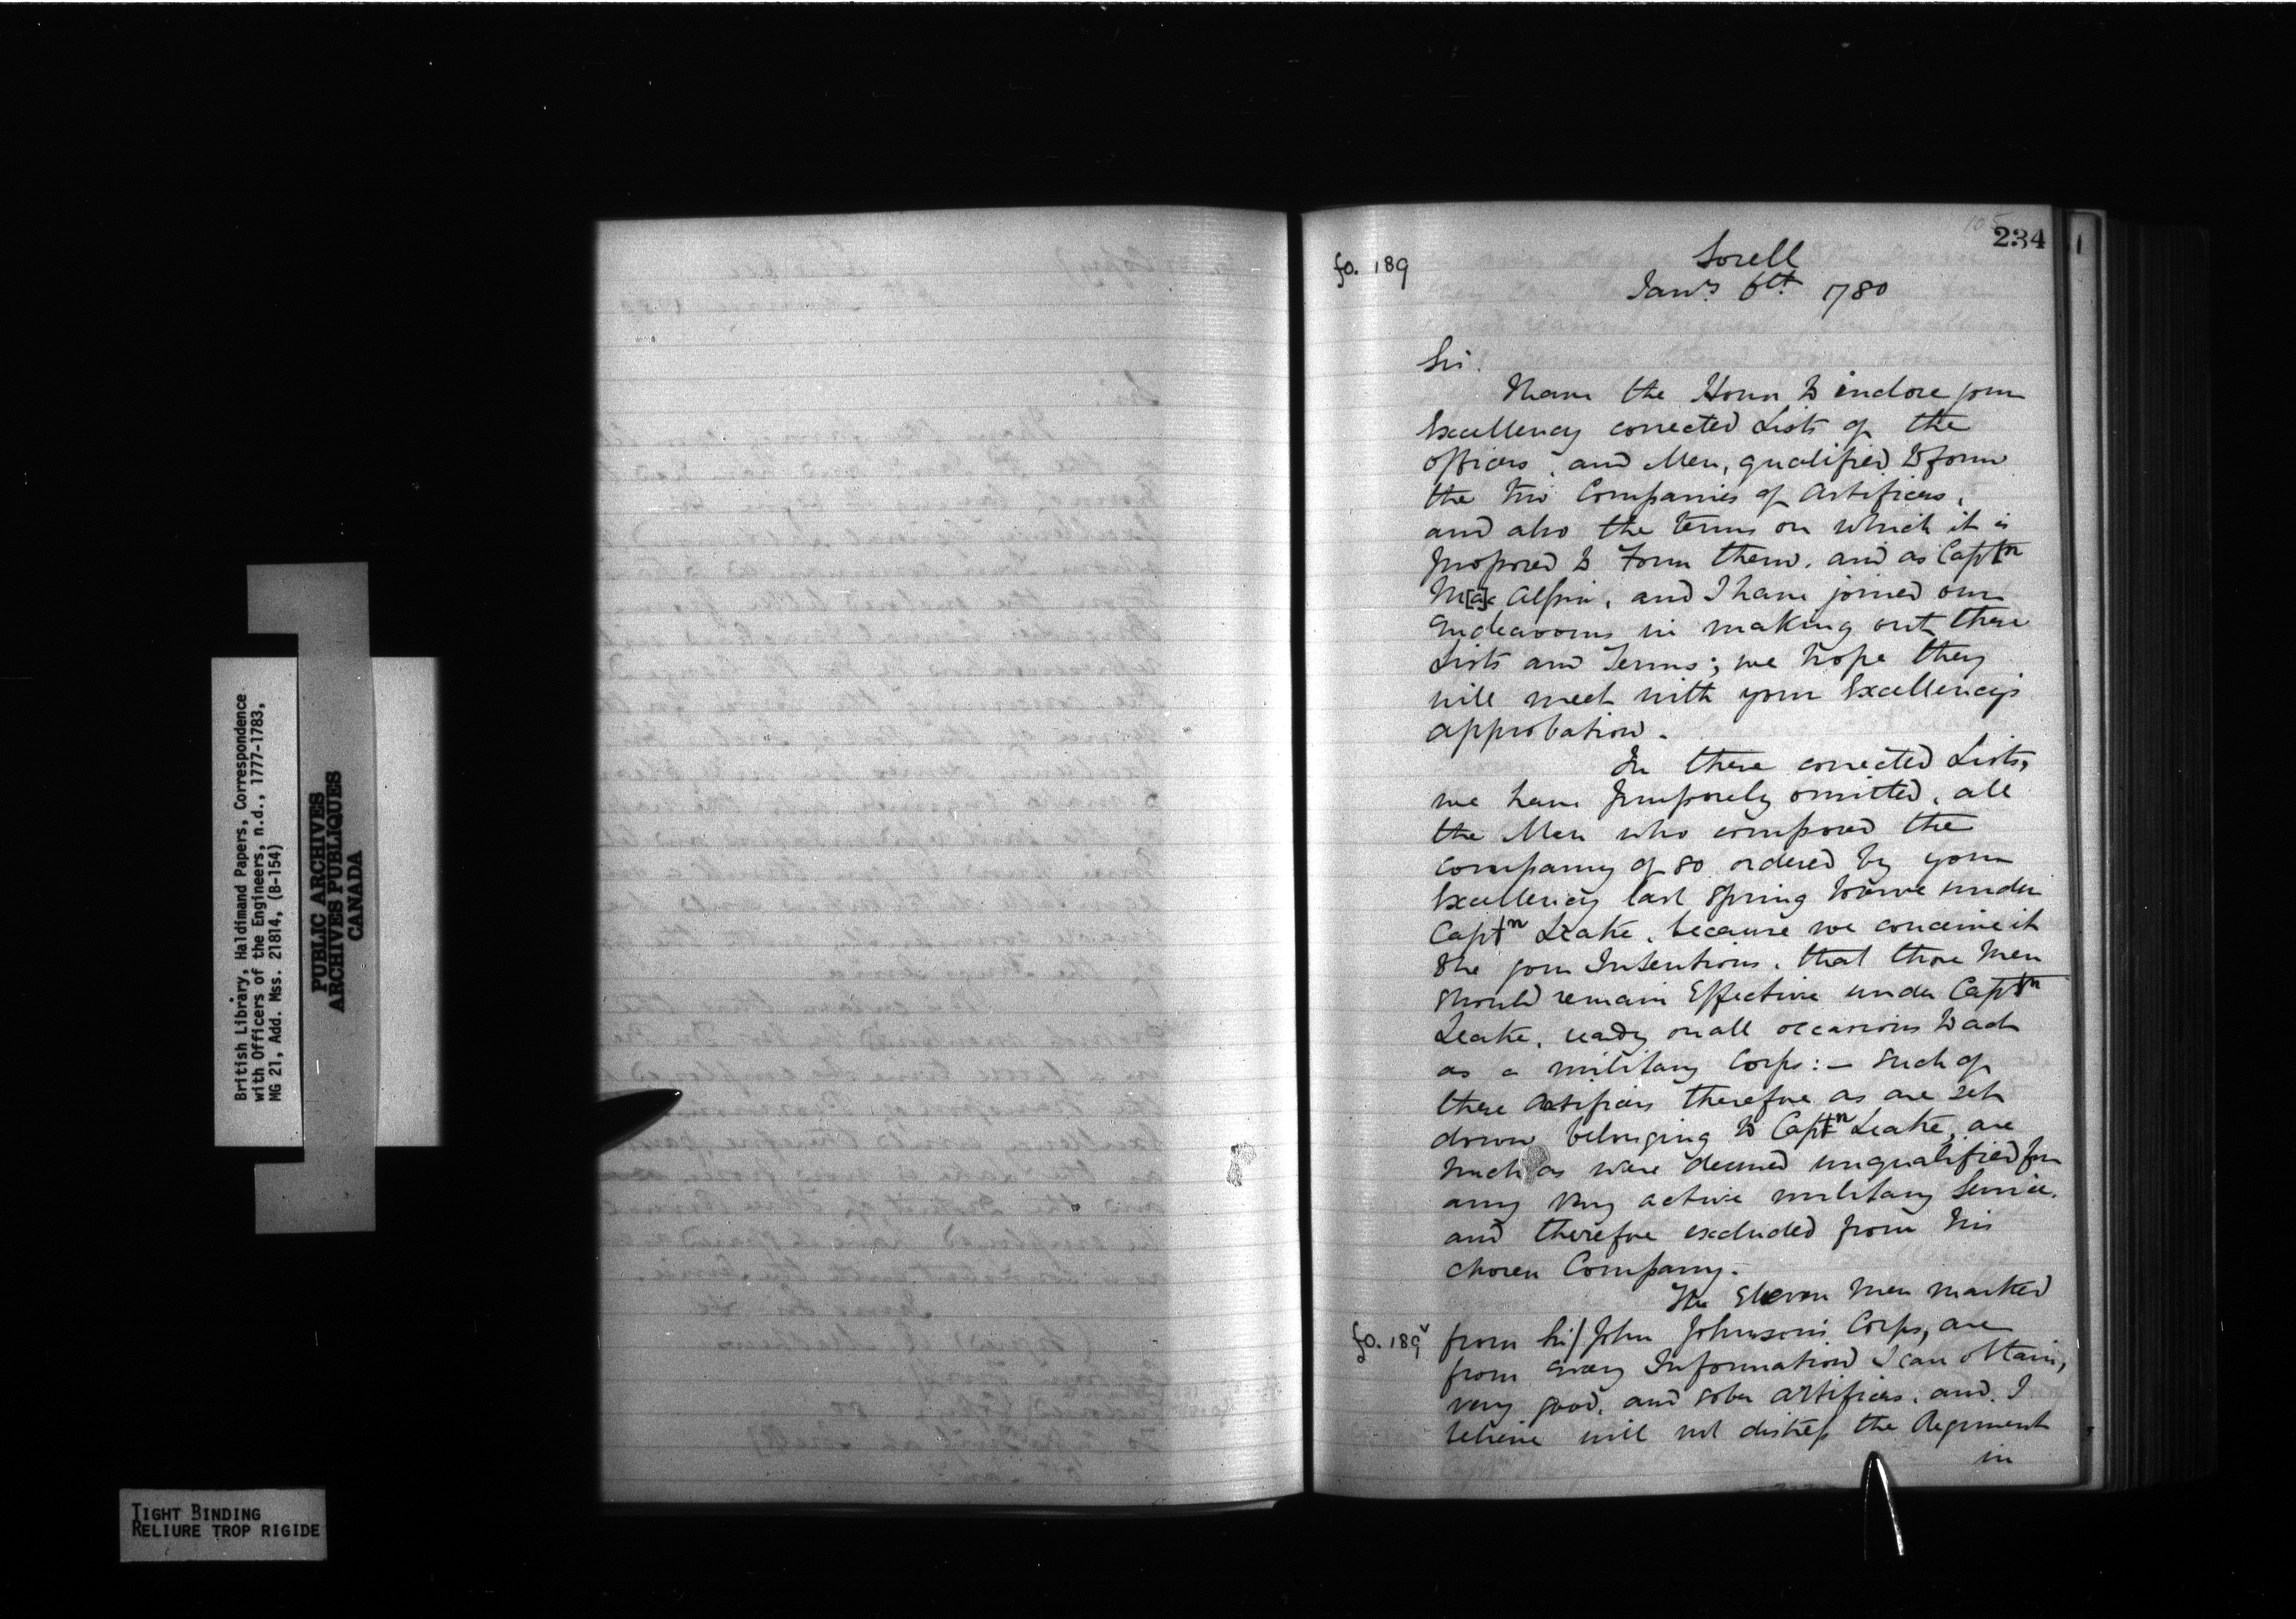 British Library, Haldimand Papers, Correspondence
with Officers of the Engineers, n.d., 1777-1783,
MG 21, Add. Mss. 21814, (B-154)
PUBLIC ARCHIVES
ARCHIVES PUBLIQUES
CANADA
TIGHT BINDING
RELIURE TROP RIGIDE
105
234
fo. 189
Sorell
Janry 6th 1780
Sir.
I have the Honor to inclose your
Excellency corrected Lists of the
officers, and Men, qualified to form
the two Companies of Artificers,
and also the terms on which it is
proposed to Form them. and as Captn
M[a]c Alpin, and I have joined our
Endeavours in making out these
Lists and Terms; we hope they
will meet with your Excellency's
approbation.
In these corrected Lists,
we have purposely omitted, all
the Men who composed the
company of 80 ordered by your
Excellency last Spring to serve under
Captn Leake, because we conceive it
to be your Intentions, that those Men
should remain Effective under Captn
Leake, ready on all occasions to act
as a military Corps: — Such of
these Artificers therefore as are set
down belonging to Captn Leake, are
such as were deemed unqualified for
any very active military Service,
and therefore excluded from his
chosen Company.
The Eleven Men marked
fo. 189v from Sir John Johnson's Corps, are
from every Information I can obtain,
very good, and sober Artificers. and I
believe will not distress the Regiment
in